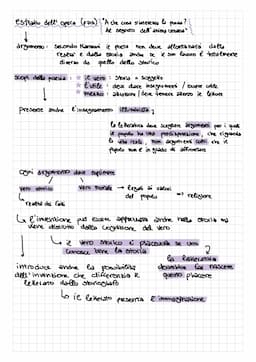 estratto dell'opera (pag) "A che cosa si riducono la poesia?
nei segreti dell'animo umano"
argomento: secondo Manzoni il poeta non deve allontanarsi dalla
realtà e dalla storia anche se il suo lavoro è totalmente
diverso da quello dello storico
scopi della poesia: il vero: storia = soggetto
l'utile: deve dare insegnamenti / essere utile
mezzo: / deve tenere stretto il lettore
presenta anche l'insegnamento illuminista:
la letteratura deve scegliere argomenti per i quali
il popolo ha una partecipazione, che riguardano
la vita reale, non argomenti colti che il
popolo non è in grado di affrontare
ogni argomento deve esprimere
vero storico vero morale → legati ai valori
del popolo → religione
realtà dei fatti
l'invenzione può essere apprezzata anche nella storia ma
viene distinta dalla cognizione del vero
↳ il vero storico è piacevole se uno
conosce bene la storia
la letteratura
dovrebbe far nascere
questo piacere
introduce anche la possibilità
dell'invenzione che differenzia il
letterato dallo storiografo
↳ il letterato presenta l'immaginazione